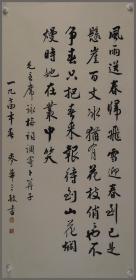 風雨送春歸飛雪迎春到已是
懸崖百丈冰猶有花枝俏俏也不
争春只把春来報待到山花爛
熳時她在叢中笑
毛主席詠梅詞調寄卜算子
一九七四年春 麥華三敬書